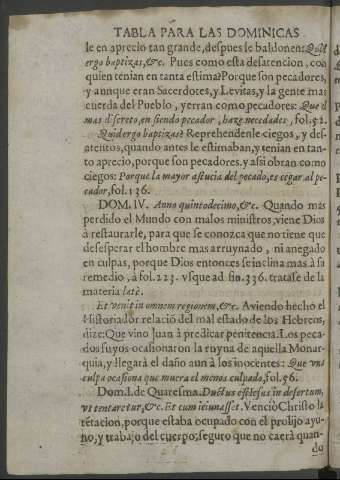 TABLA PARA LAS DOMINICAS
le en aprecio tan grande, despues le baldonen: Quid
ergo baptizas, &c. Pues como esta desatencion, con
quien tenian en tanta estima? Porque son pecadores,
y aunque eran Sacerdotes, y Levitas, y la gente mas
cuerda del Pueblo, yerran como pecadores: Que el
mas discreto, en siendo pecador, haze necedades, fol. 52.
Quid ergo baptizas? Reprehendenle ciegos, y des-
atentos, quando antes le estimaban, y tenian en tan-
to aprecio, porque son pecadores, y assi obran como
ciegos: Porque la mayor astucia del pecado, es cegar al pe-
cador, fol. 136.
DOM. IV. Anno quintodecimo, &c. Quando mas
perdido el Mundo con malos ministros, viene Dios
à restaurarle, para que se conozca que no tiene que
desesperar el hombre mas arruynado, ni anegado
en culpas, porque Dios entonces se inclina mas à su
remedio, à fol. 223. vsque ad fin. 336. tratase de la
materia latè.
Et venit in omnem regionem, &c. Aviendo hecho el
Historiador relaciõ del mal estado de los Hebreos,
dize: Que vino Juan à predicar penitencia. Los peca-
dos suyos ocasionaron la ruyna de aquella Monar-
quia, y llegarà el daño aun à los inocentes: Que vna
culpa ocasiona que muera el menos culpado, fol. 56.
Dom. I. de Quaresma. Ductus est Iesus in desertum,
vt tentaretur, &c. Et cum ieiunasset. Venciò Christo la
tẽtacion, porque estaba ocupado con el prolijo ayu-
no, y trabajo del cuerpo; seguro que no caerà quan-
do